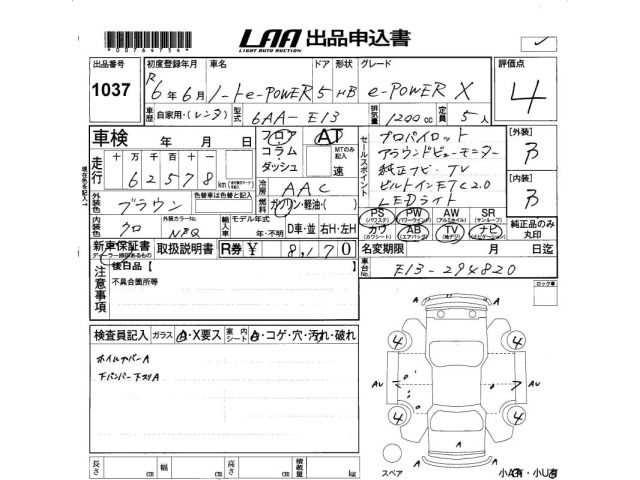 00764754
LAA 出品申込書
LIGHT AUTO AUCTION
出品番号
1037
初度登録年月 車名 ドア 形状 グレード
R6年6月 ノートe-POWER 5 HB e-POWER X
評価点
4
車歴 自家用・(レンタ) 型式 6AA-E13 排気量 1200cc 定員 5人
車検 年 月 日
フロア AT
コラム・ダッシュ
MTのみ記入
速
セールスポイント
プロパイロット
アラウンドビューモニター
純正ナビ・TV
ビルトインETC2.0
LEDライト
【外装】
【内装】
走行 十万千百十
62578 km
冷房 AAC
燃料 ガソリン・軽油・( )
現在色を記入→
外装色 ブラウン
色替車は色替と記入
内装色 クロ
外装カラーNo.
輸入車 モデル年式 年・不明
D車・並 右H・左H
PS (パワステ) PW (パワーウインド) AW (アルミホイル) SR (サンルーフ)
カワ (カワシート) AB (エアバック) TV (地デジ) ナビ (ナビゲーション)
純正品のみ丸印
新車保証書 取扱説明書 R券 ¥ 8,170
名変期限 月 日迄
車台No. E13-294820
注意事項
後日品【
不具合箇所等
ロック車
検査員記入 ガラス A・X要ス 室内シート A・コゲ・穴・汚れ・破れ
ホイルカバーA
下バンパー下スリA
4 4
AU AU
4 4
A
A A A
スペア
小A有・小U有
長さ cm 幅 cm 高さ cm 積載量 kg